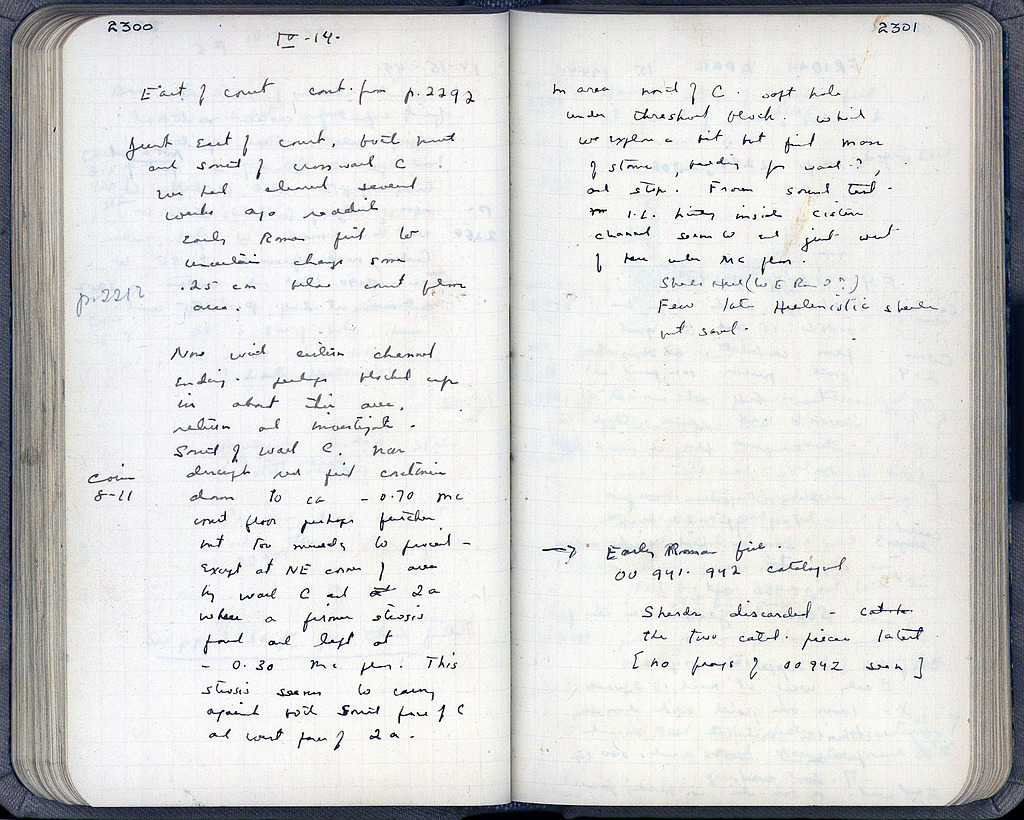 2300
IV-14-
East of court cont. from p.2292
Just East of court, both
and South of crosswall C.
we had cleared several
weeks ago
Early Roman fill to
uncertain change some
.25 cm below court floor
p.2212
area.
Now with cistern channel
ending - perhaps blocked up
in about this area,
return and investigate.
South of wall C, now
coin
8-11
through red fill
down to ca - 0.70 MC
court floor perhaps further,
but too muddy to proceed -
Except at NE corner of area
by wall C and 2a
where a firmer strosis
found and left at
- 0.30 MC floor. This
strosis seems to carry
against both South face of C
and west face of 2a.
2301
In area north of C. soft hole
under threshold block. Which
we explore a bit but find mass
of stone bedding for wall?,
and stop. From sound test -
i.e. inside cistern
channel seems to end just west
of here under MC floor.
Sherds (WERE ??)
Few late Hellenistic sherds
not saved.
→ Early Roman fill.
OO 941. 942 catalogued
Sherds discarded -
the two catal. pieces latest
[no frags of OO 942 seen]